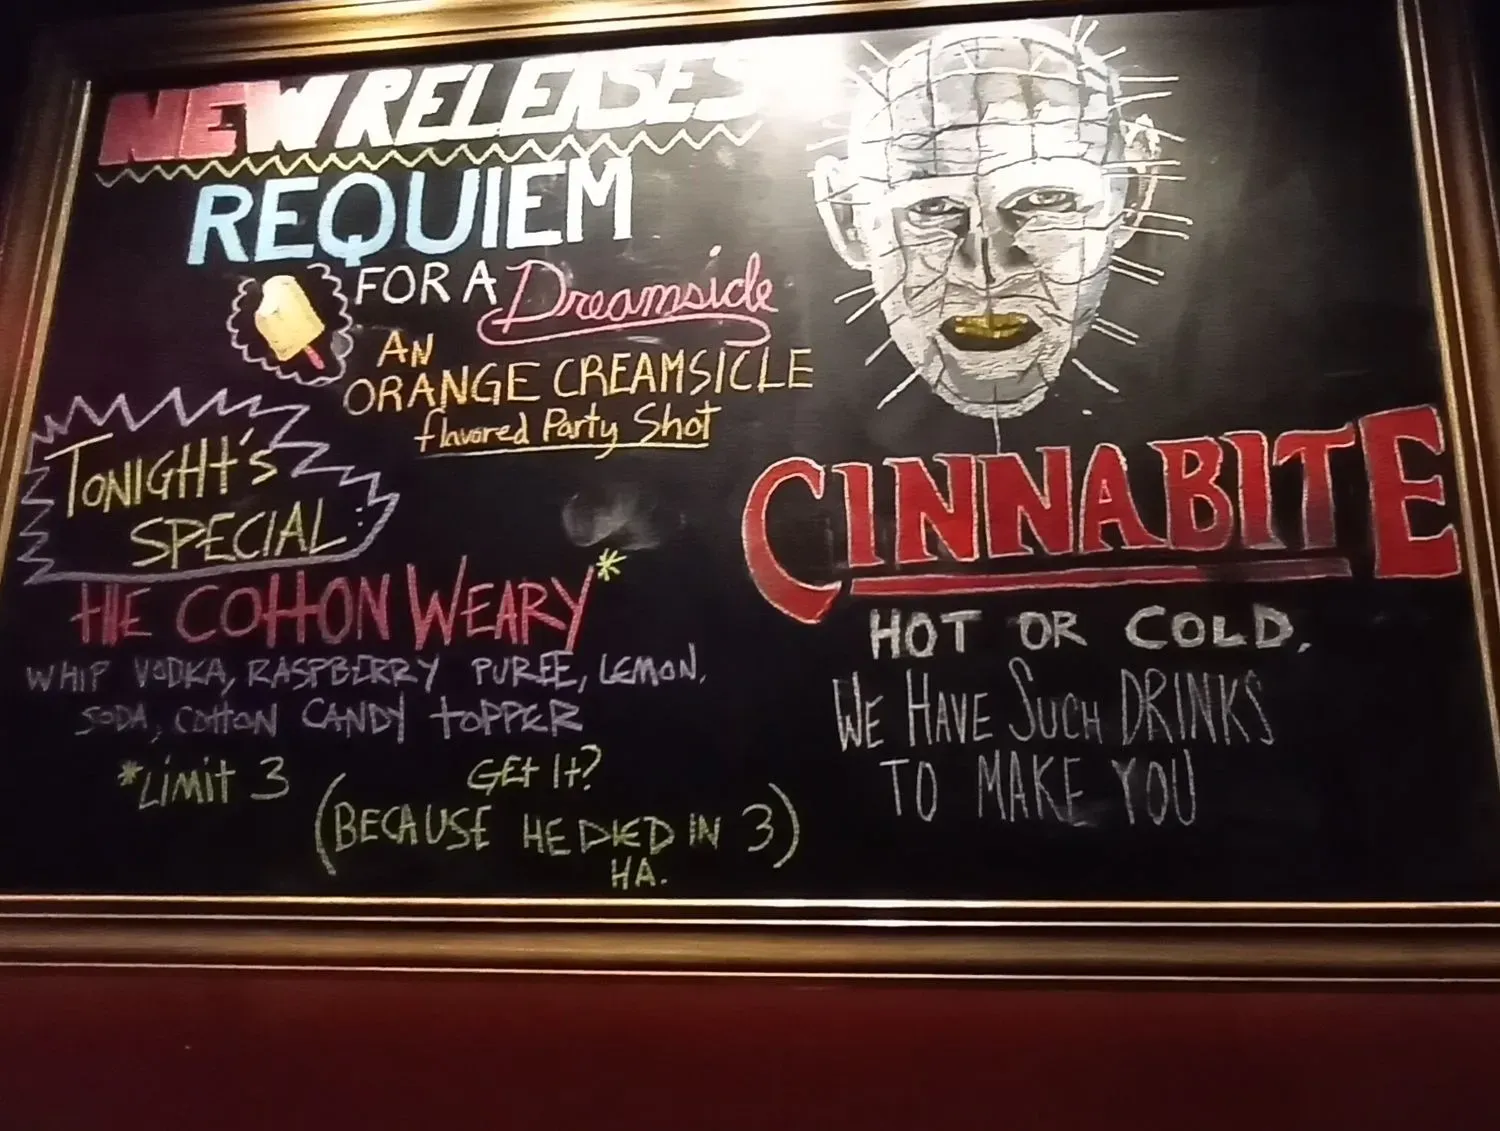 NEW RELEASES
REQUIEM
FOR A Dreamsicle
AN
ORANGE CREAMSICLE
flavored Party Shot
TONIGHT'S
SPECIAL:
THE COTTON WEARY*
WHIP VODKA, RASPBERRY PUREE, LEMON,
SODA, COTTON CANDY TOPPER
*LIMIT 3
GET IT?
(BECAUSE HE DIED IN 3)
HA.
CINNABITE
HOT OR COLD,
WE HAVE SUCH DRINKS
TO MAKE YOU